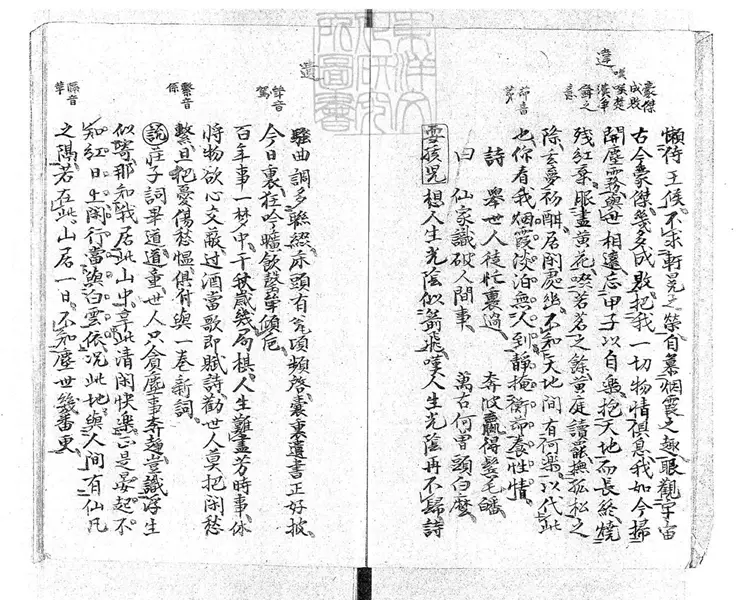 懶侍王侯不求軒冕之榮自慕烟霞之趣眼觀宇宙
古今豪傑幾多成敗把我一切物情俱息我如今掃
開塵霧與世相違忘甲子以自娛抱天地而長終燒
残紅葉眼盡黄花啖若茗之餘黄庭讀罷撫孤松之
除玄夢初醒居閑處坐不知天地間有何樂以代此
也你看我烟霞淡泊無人到靜掩衡茆養性情
詩　舉世人徒忙裏過　奔波贏得鬢毛皤
曰　仙家識破人間事　萬古何曽頭白麽
耍孩児想人生光陰似箭飛嘆人生光陰再不歸詩
騷曲調多聯綴床頭有瓮頃頻啓囊裏遺書正好披
今日裏狂吟曠飲謦舉傾卮
百年事一梦中千秋歳幾局棋人生難盡芳時事休
將物欲心交蔽过酒當歌即賦詩勸世人莫把閑愁
繫且把憂傷愁愠俱付與一卷新詞
説莊子詞畢道道童世人只貪塵事奔趨豈識浮生
似寄那知我居此山中享此清閑快樂正是晏起不
知紅日上閑行當與白雲依况此地與人間有仙凡
之隔若在此山居一日不知塵世幾番更
違
豪傑
成敗
茆音
聲音
繫音
係
隔音
遺
東洋文
化研究
所圖書